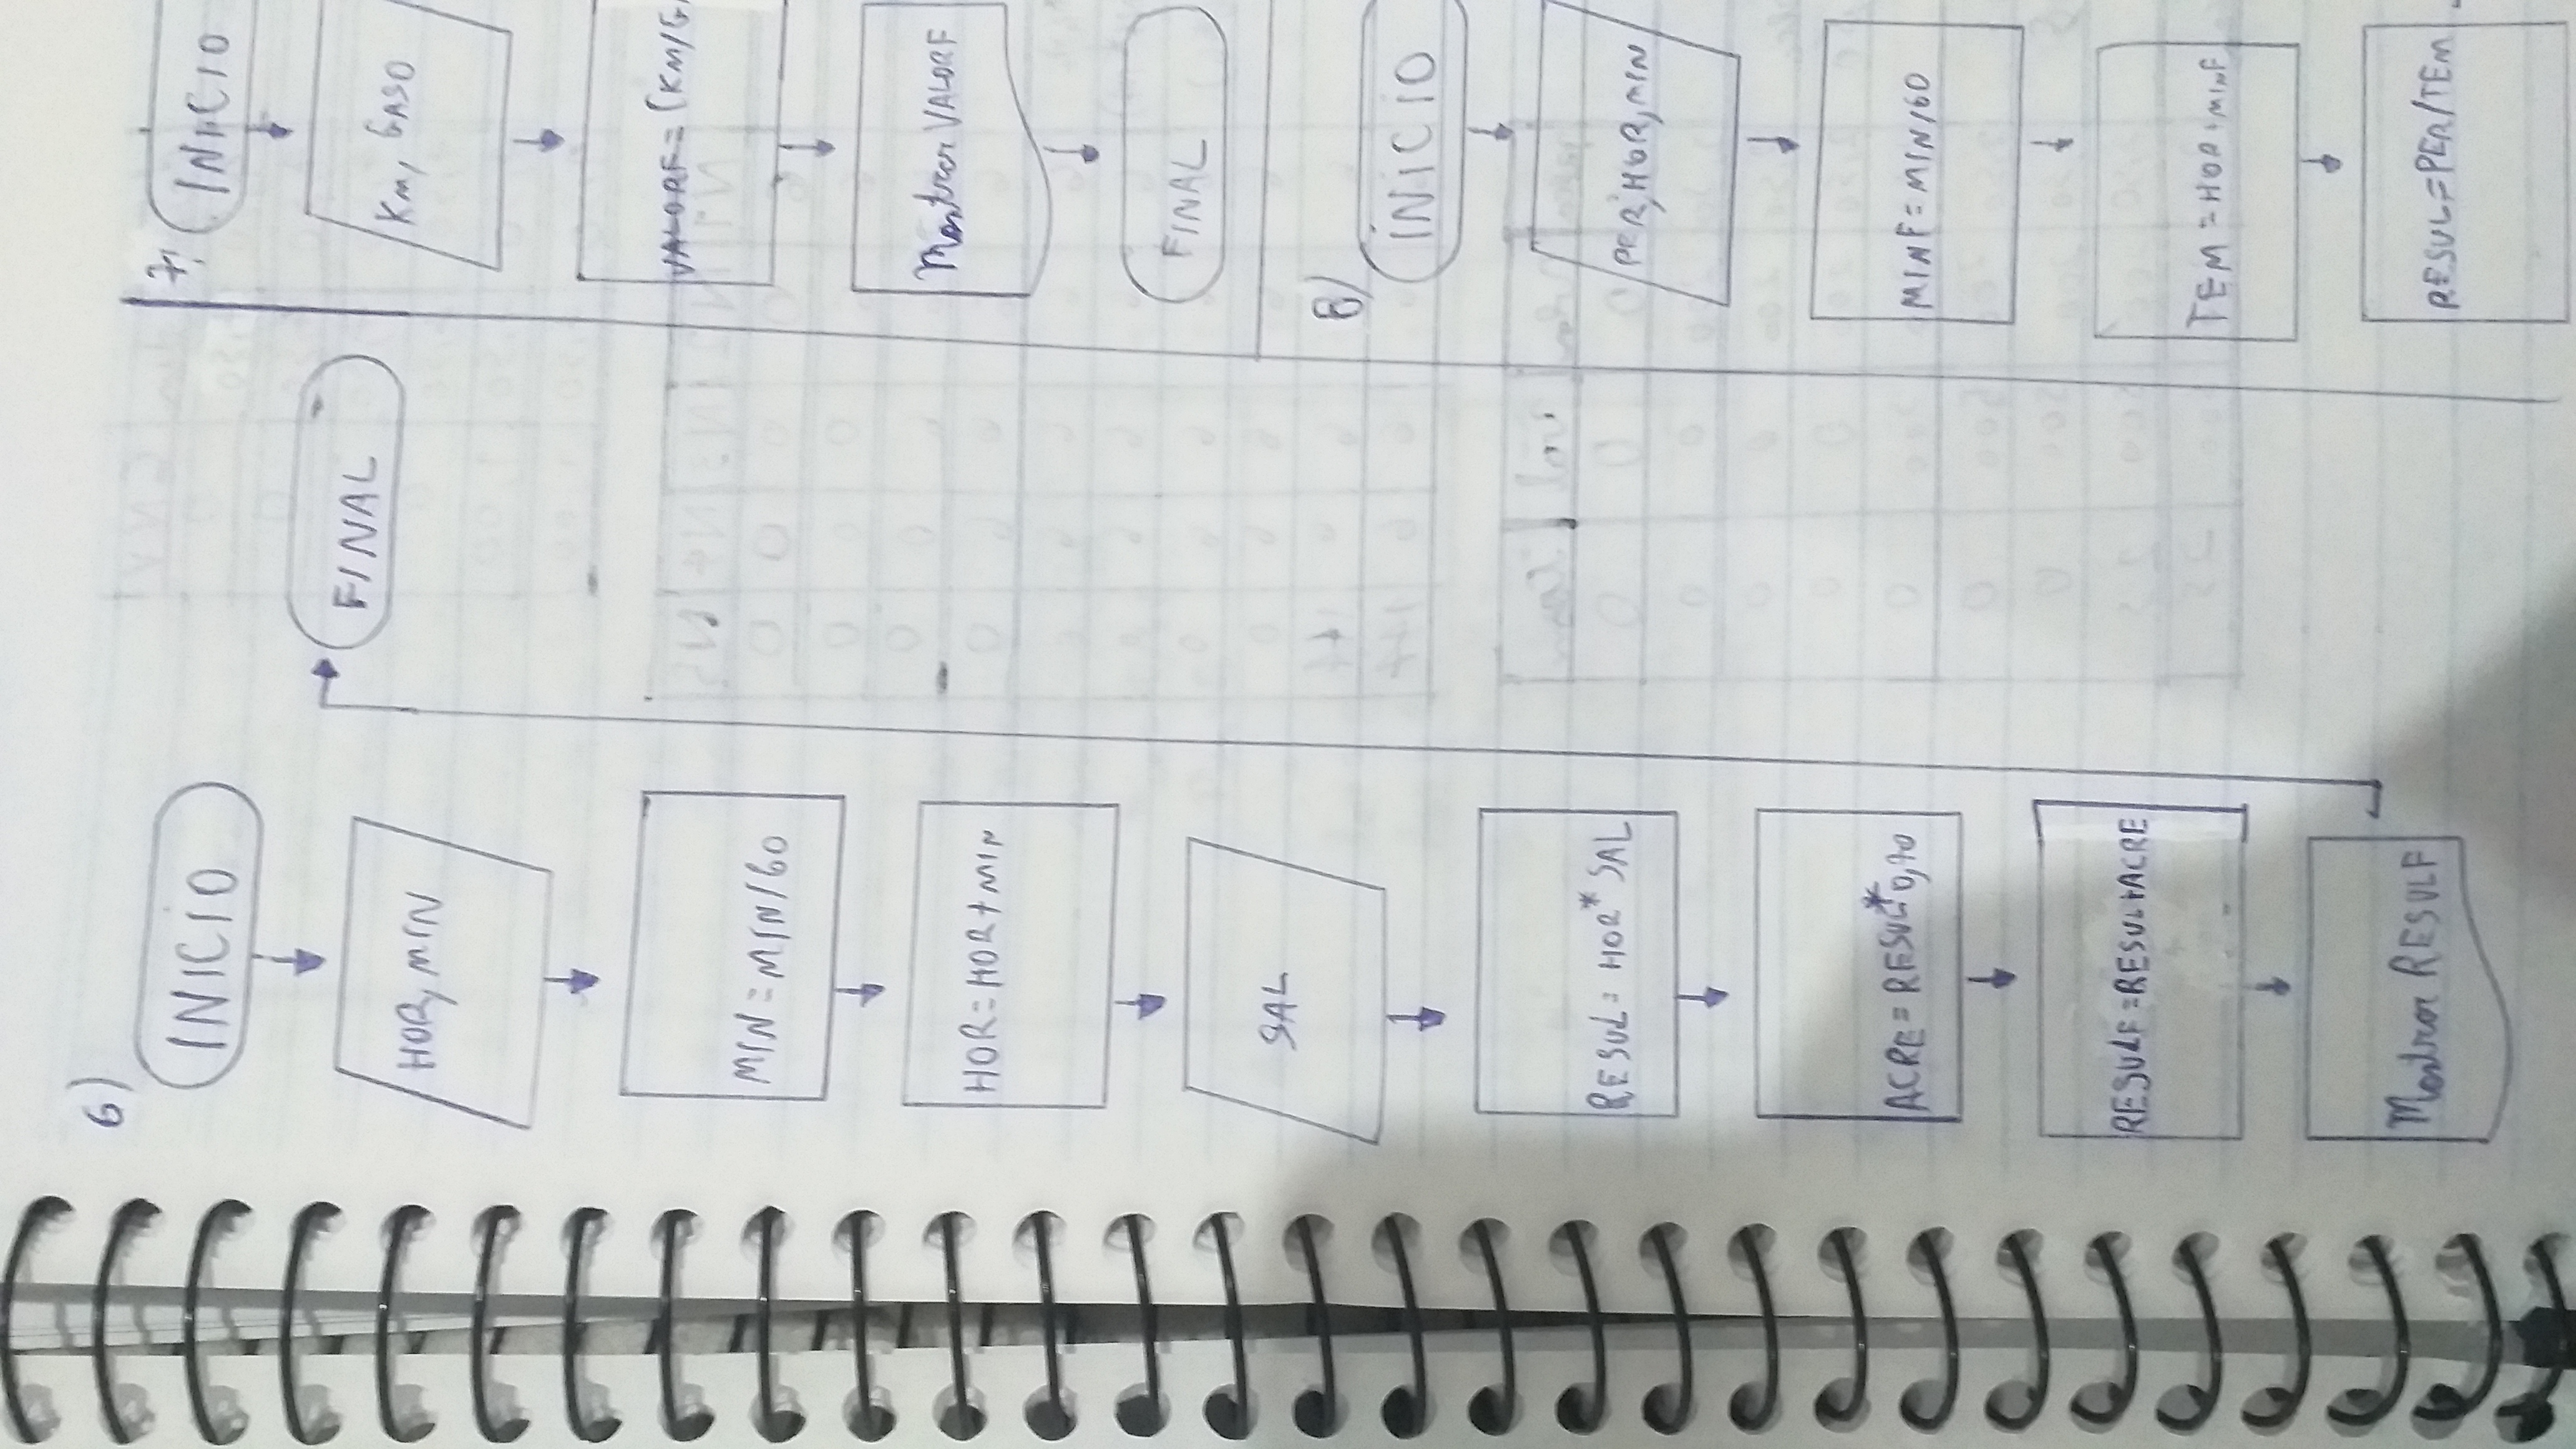 6)
INICIO
HOR, MIN
MIN = MIN/60
HOR = HOR + MIN
SAL
RESUL = HOR * SAL
ACRE = RESUL *
RESULF = RESUL + ACRE
Mostrar RESULF
FINAL
7)
INICIO
KM, GASO
VALORF = (KM/G
Mostrar VALORF
FINAL
8)
INICIO
PER, HOR, MIN
MINF = MIN/60
TEM = HOR + MINF
RESUL = PER/TEM